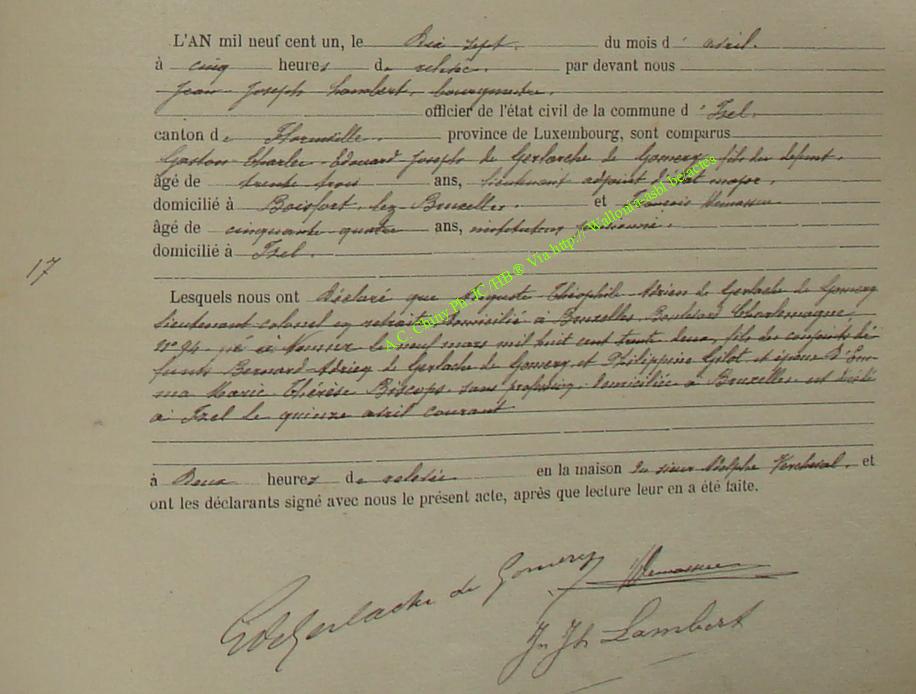 L'AN mil neuf cent un, le Dix sept du mois d'avril.
à cinq heures de relevée, par devant nous
Jean Joseph Lambert, bourgmestre,
officier de l'état civil de la commune d'Izel,
canton de Florenville, province de Luxembourg, sont comparus
Gaston Charles Edouard Joseph de Gerlache de Gomery, fils du défunt,
âgé de trente trois ans, lieutenant adjoint d'état major,
domicilié à Boisfort lez-Bruxelles, et François
âgé de cinquante quatre ans, instituteur pensionné,
domicilié à Izel.
17
Lesquels nous ont déclaré que Auguste Théophile Adrien de Gerlache de Gomery
lieutenant colonel en retraite domicilié à Bruxelles, Boulevard Charlemagne,
N° 94, né à le neuf mars mil huit cent trente deux, fils des conjoints dé
funts Bernard Adrien de Gerlache de Gomery et Philippine Gilot et époux d'Em
ma Marie Thérèse Biscops, sans profession, domiciliée à Bruxelles est décédé
à Izel le quinze avril courant
à Deux heures de relevée en la maison du sieur Adolphe et
ont les déclarants signé avec nous le présent acte, après que lecture leur en a été faite.
A.C. Chiny Ph. JC/HB ® Via http://Wallonia-asbl.be/actes
de Gerlache de Gomery
J. Jh Lambert